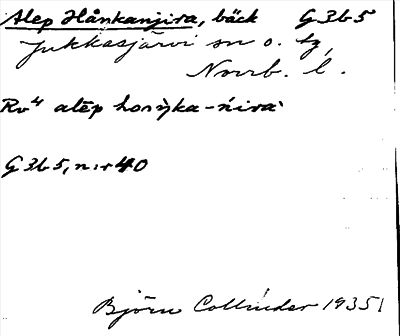 Alep Hånkanjira, bäck G 3b 5
Jukkasjärvi sn o. tg,
Norrb. l.
Rv⁴ alēp hoŋ̀ka-ńira`
G 3b 5, n:r 40
Björn Collinder 1935